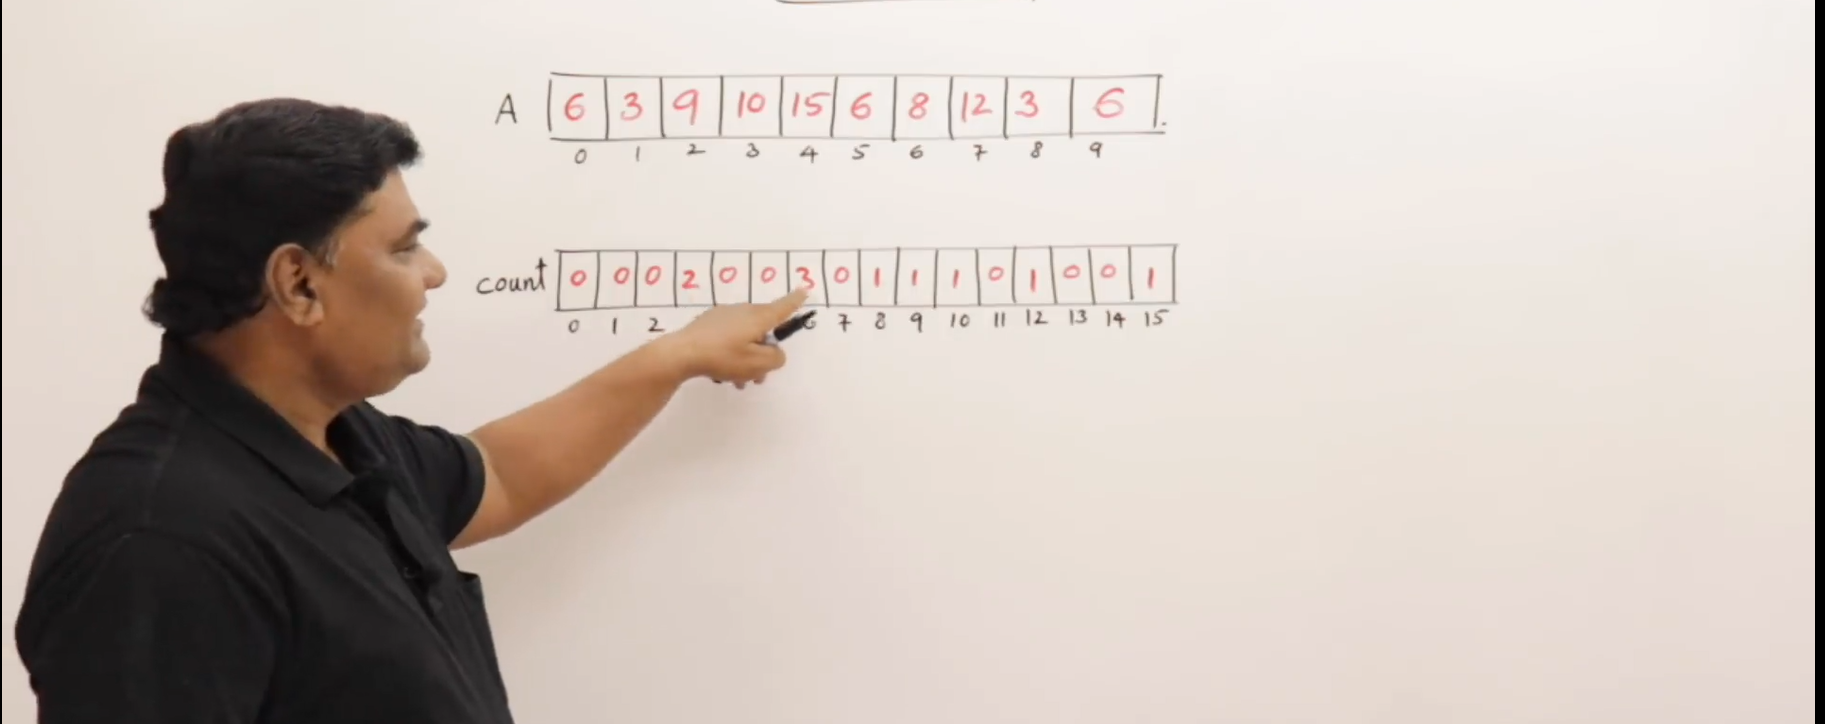 A 6 3 9 10 15 6 8 12 3 6
0 1 2 3 4 5 6 7 8 9
count 0 0 0 2 0 0 3 0 1 1 1 0 1 0 0 1
0 1 2 6 7 8 9 10 11 12 13 14 15